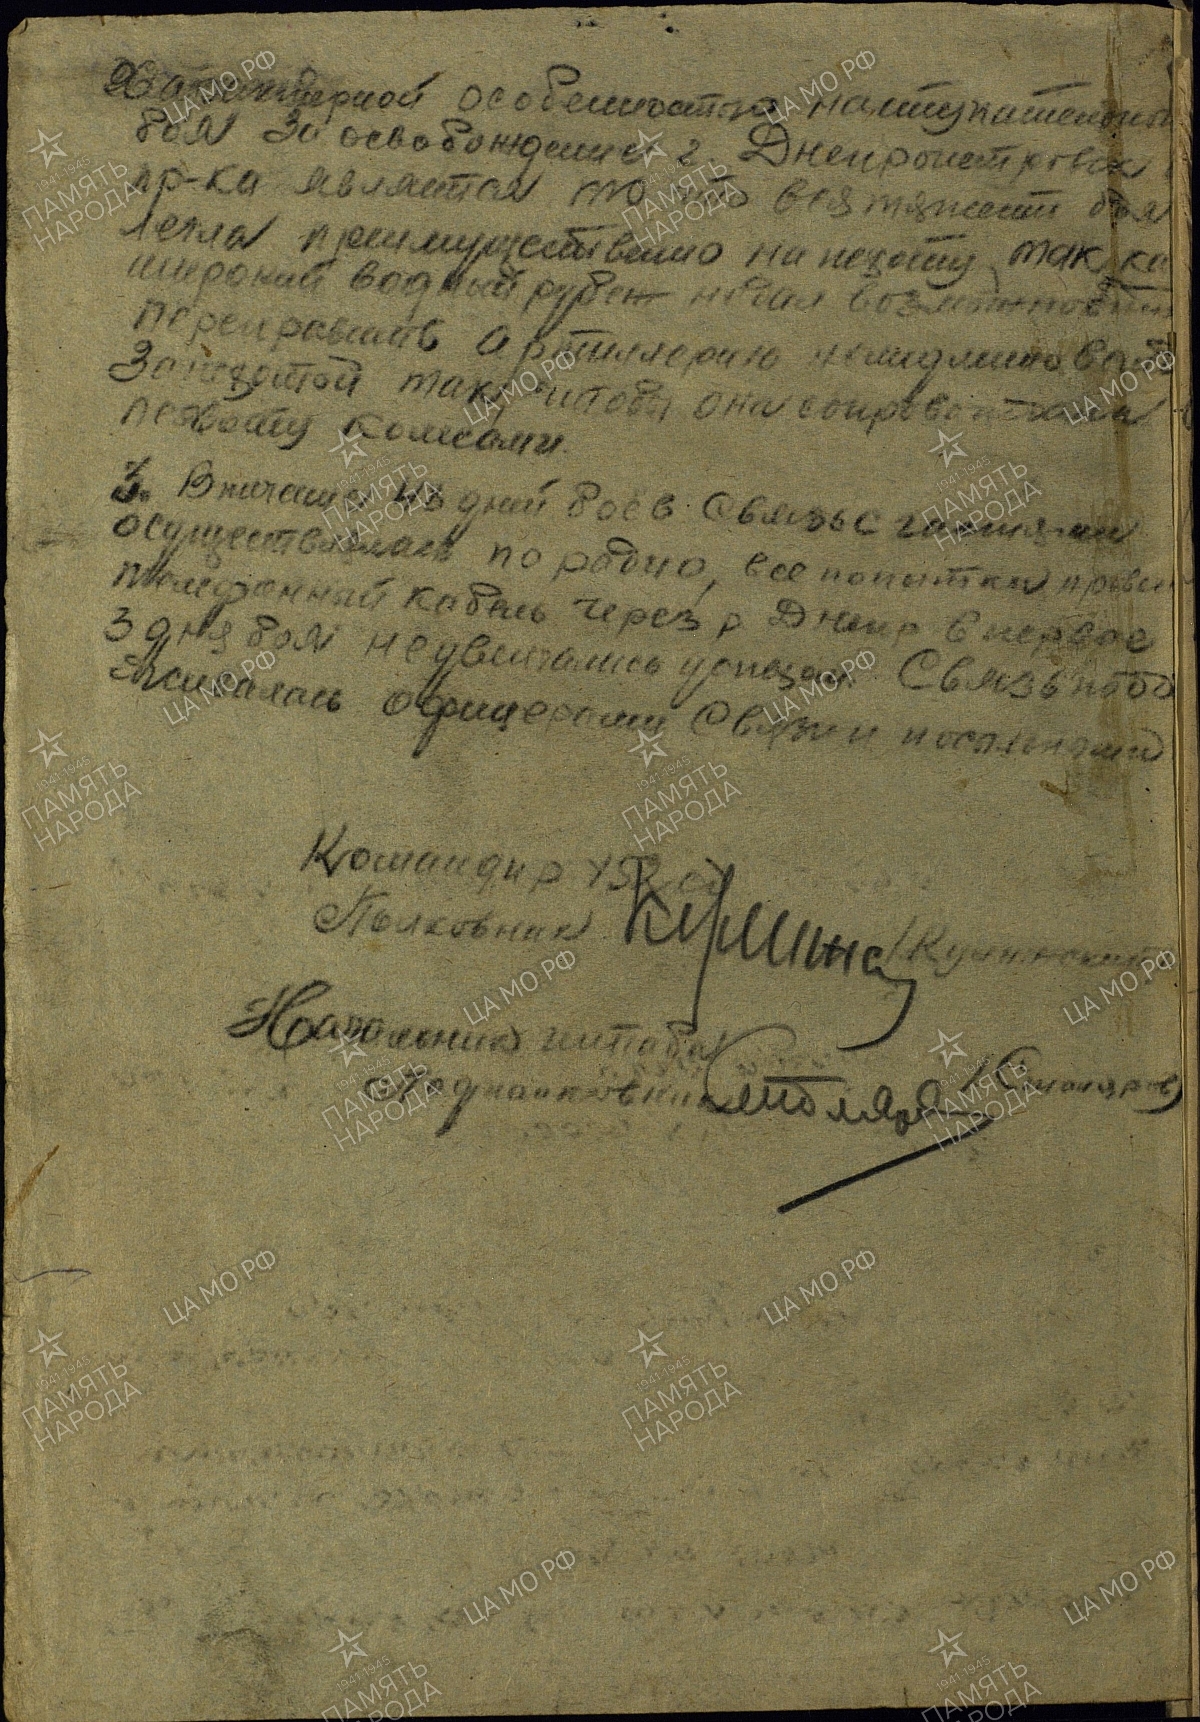 Характерной особенностью наступательного
боя за освобождение г Днепропетровск
пр-ка является то что вся тяжесть боя
легла преимущественно на пехоту, так ка
широкий водный рубеж не дал возможности
переправить артиллерию немедленно вслед
за пехотой так чтобы она сопровождала
пехоту колесами.
3. В начальн дней боев Связь с частями
осуществлялась по радио, все попытки провести
телефонный кабель через р Днепр в первое
3 дня боя не увенчались успехом Связь
офицерами Связи и посыльными
Командир 152 сд
Полковник /Кушнинский
Начальник штаба
Подполковник /Столяров/
ЦА МО РФ
1941-1945
ПАМЯТЬ
НАРОДА